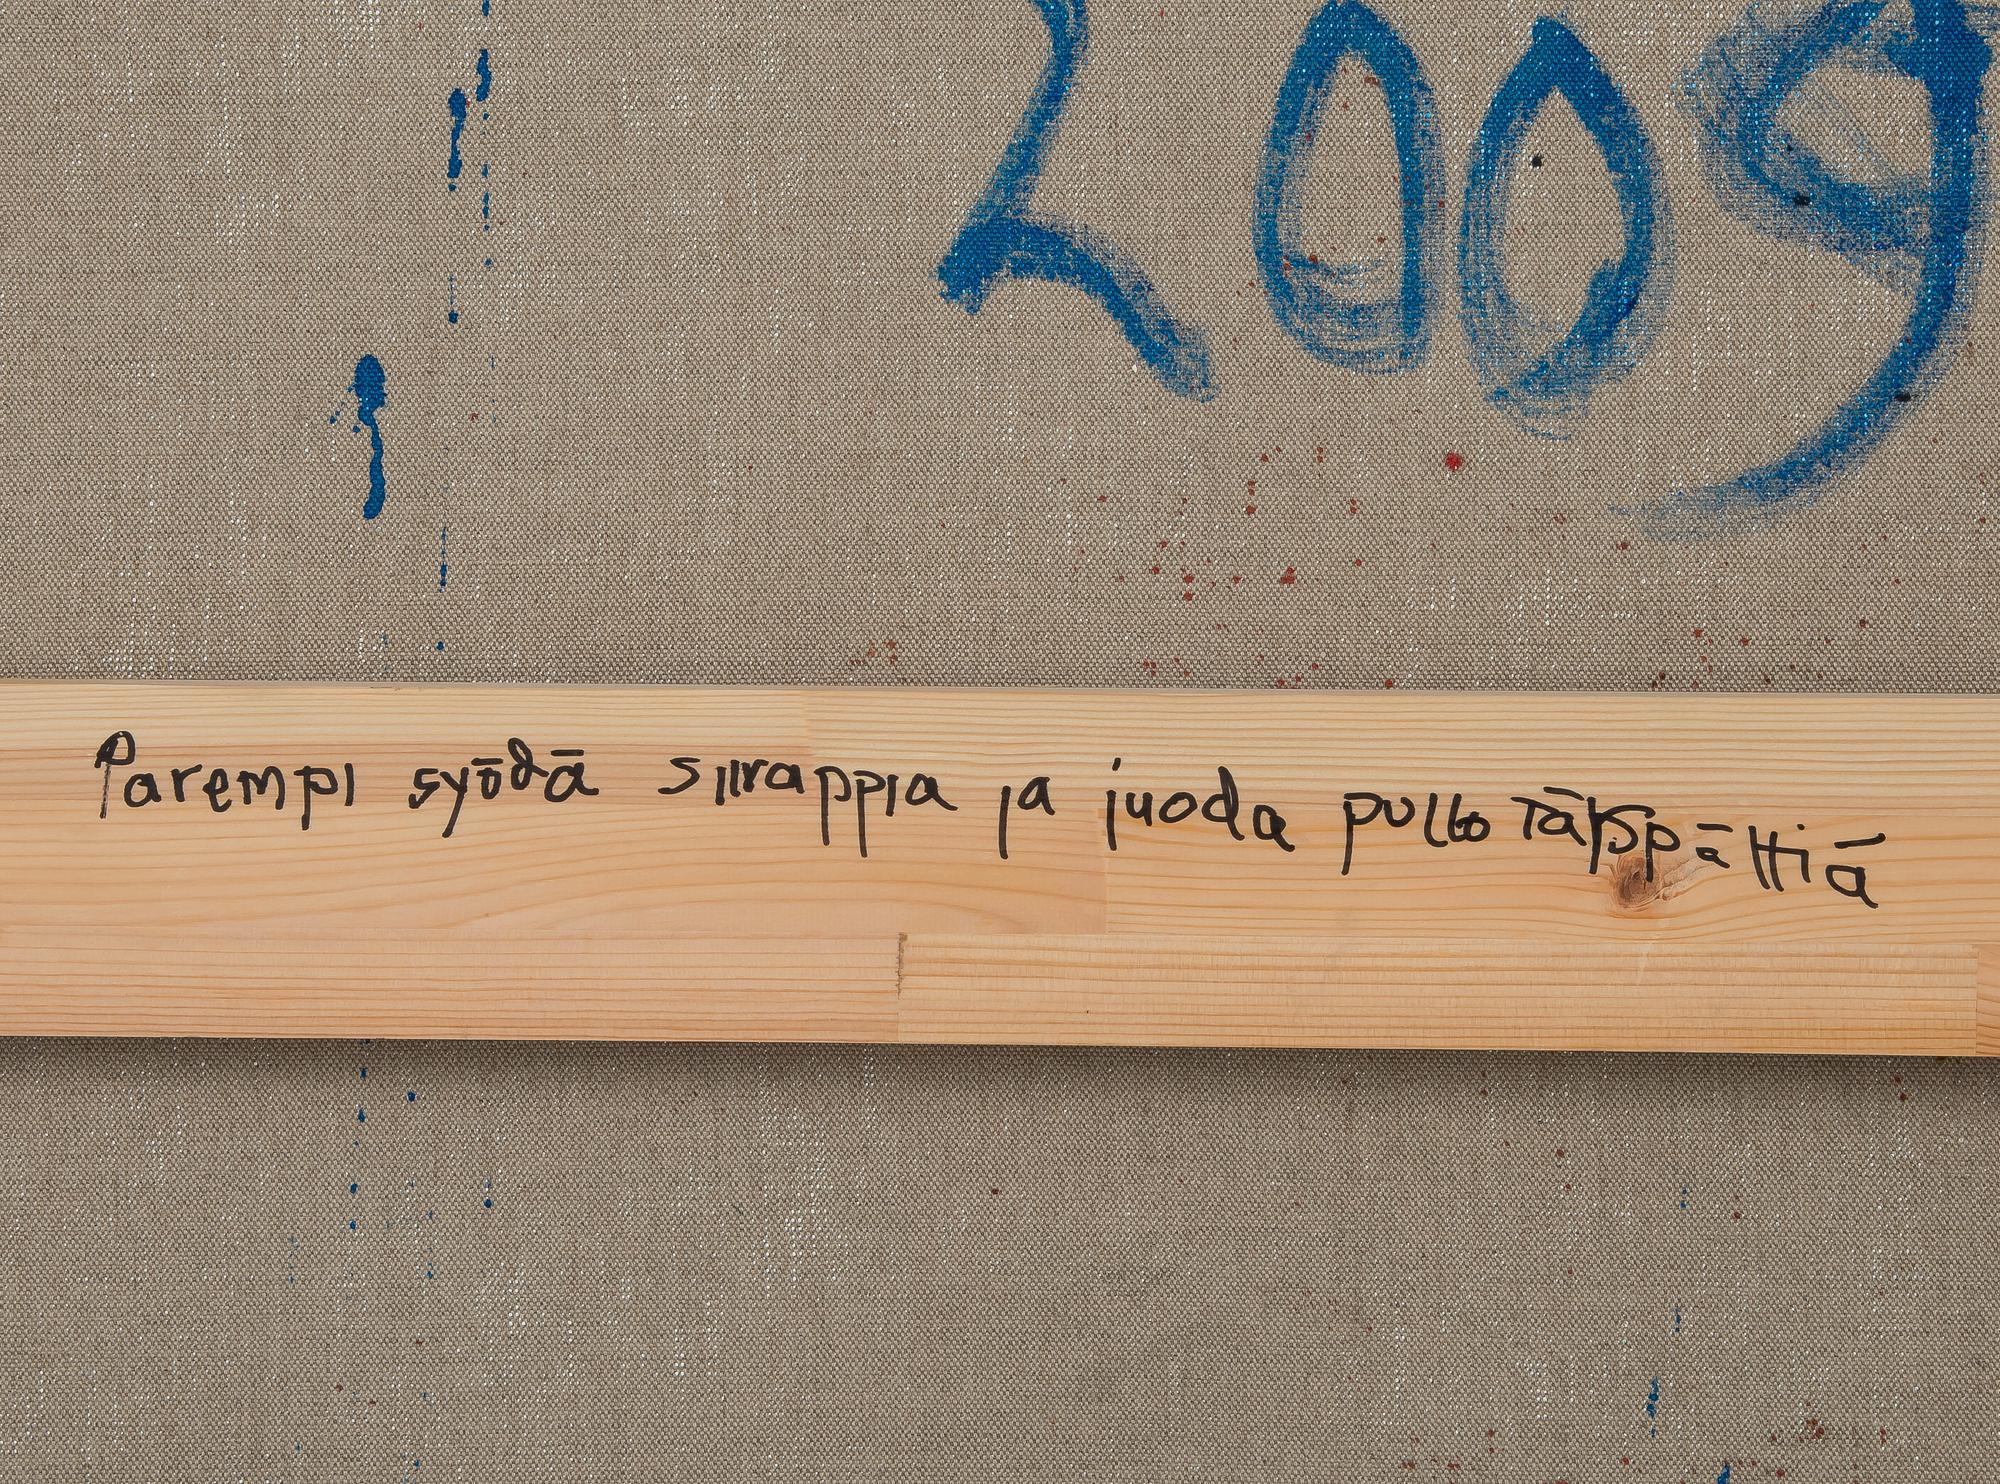 2009
Parempi syödä siirappia ja juoda pullo tärpättiä